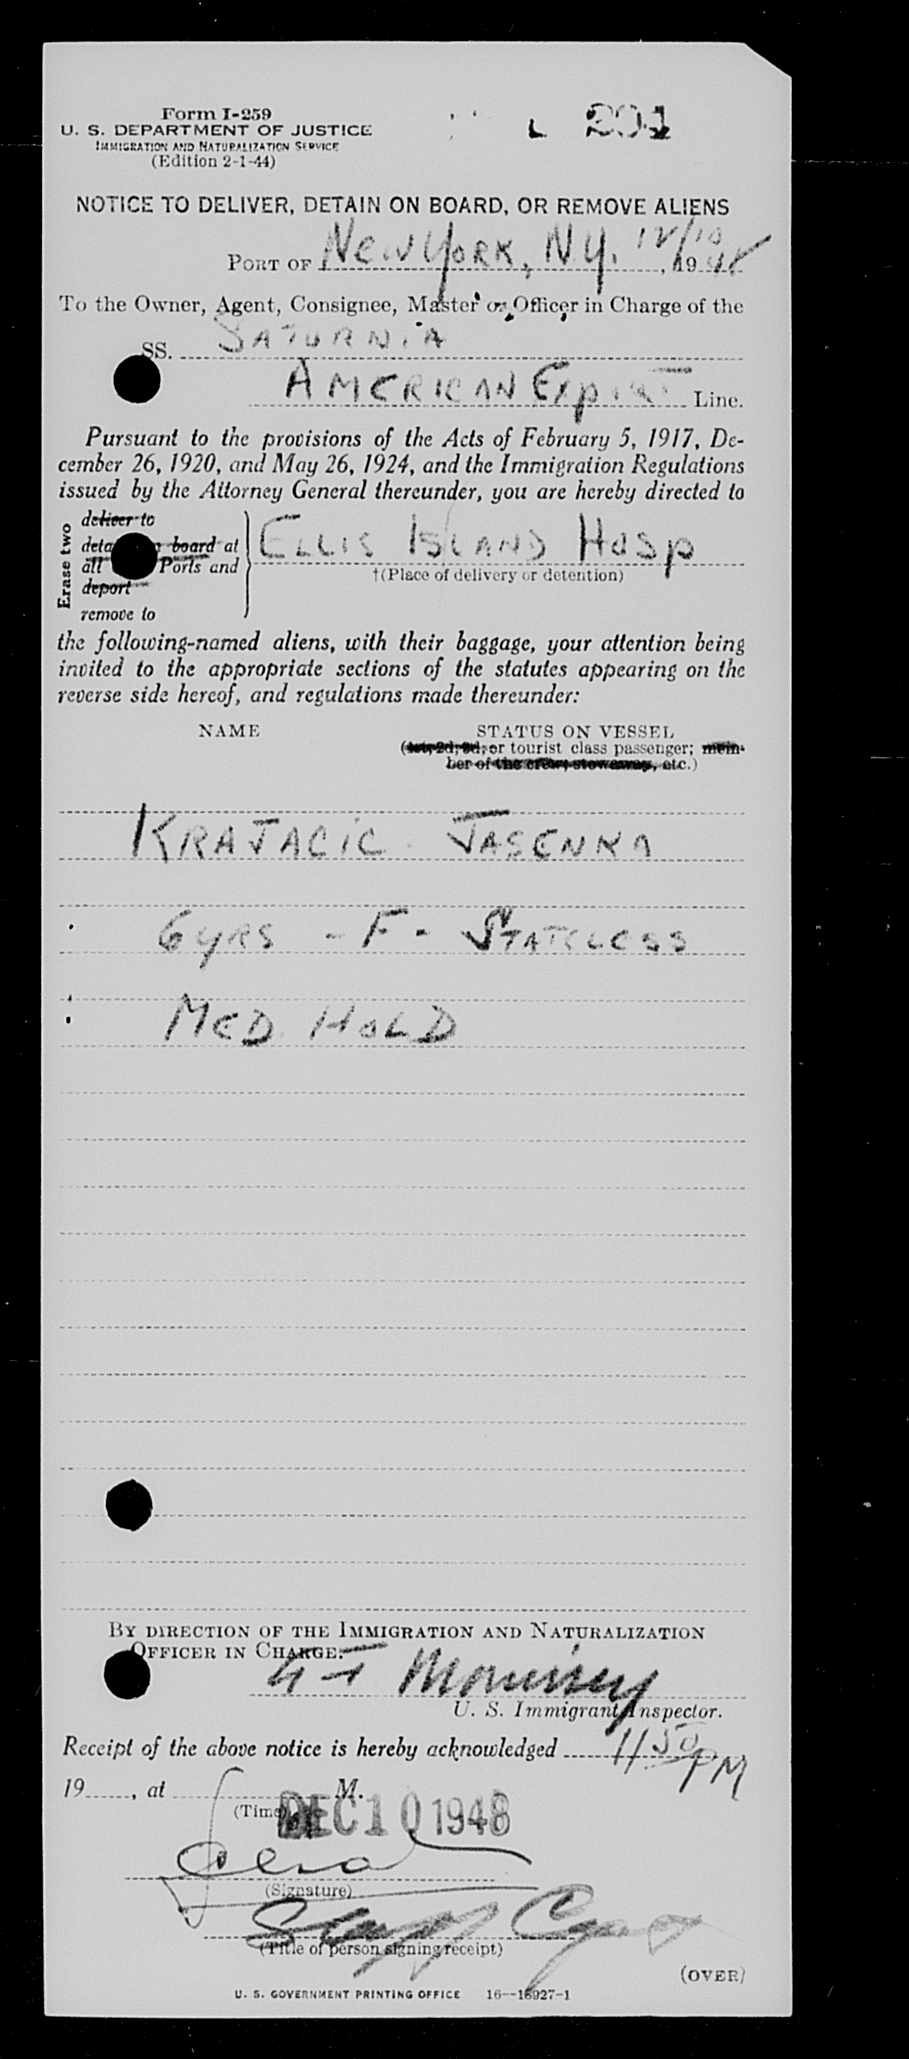 Form I-259
U. S. DEPARTMENT OF JUSTICE
IMMIGRATION AND NATURALIZATION SERVICE
(Edition 2-1-44)
L 204
NOTICE TO DELIVER, DETAIN ON BOARD, OR REMOVE ALIENS
PORT OF New York, N.Y. 12/10, 1948
To the Owner, Agent, Consignee, Master or Officer in Charge of the
SS. SATURNIA
AMERICAN Export Line.
Pursuant to the provisions of the Acts of February 5, 1917, De-
cember 26, 1920, and May 26, 1924, and the Immigration Regulations
issued by the Attorney General thereunder, you are hereby directed to
Erase two
deliver to
board at
all Ports and
deport
remove to
ELLIS ISLAND HOSP
†(Place of delivery or detention)
the following-named aliens, with their baggage, your attention being
invited to the appropriate sections of the statutes appearing on the
reverse side hereof, and regulations made thereunder:
NAME STATUS ON VESSEL
(1st, 2d, 3d, or tourist class passenger; mem-
ber of the crew, stowaway, etc.)
KRAJACIC JASENKA
6 yRS - F - STATELESS
MED HOLD
BY DIRECTION OF THE IMMIGRATION AND NATURALIZATION
OFFICER IN CHARGE:
Morrissey
U. S. Immigrant Inspector.
Receipt of the above notice is hereby acknowledged 11 50 PM
19, at M.
(Time)
DEC 10 1948
(Signature)
(Title of person signing receipt)
(OVER)
U. S. GOVERNMENT PRINTING OFFICE 16—16927-1